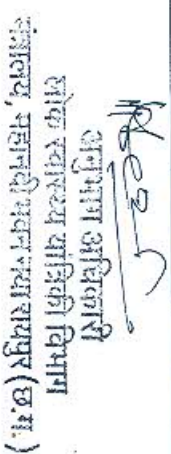 अनुभाग अधिकारी
लोक स्वास्थ्य यांत्रिकी विभाग
मंत्रालय, महानदी भवन नया रायपुर (छ.ग.)